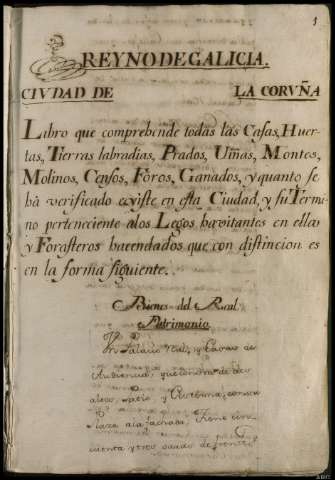 1
REYNO DE GALICIA.
CIVDAD DE LA CORVÑA
Libro que comprehende todas las Casas, Huer-
tas, Tierras labradias, Prados, Viñas, Montes,
Molinos, Censos, Foros, Ganados, y quanto se
há verificado existe en esta Ciudad, y su Termi-
no perteneciente alos Legos havitantes en ella
y Forasteros hacendados que con distincion es
en la forma siguiente.
Bienes del Real
Patrimonio
Vn Palacio Real, y Casas de
Audiencia, que
plaza ala fachada, tiene cin-
cuenta y tres